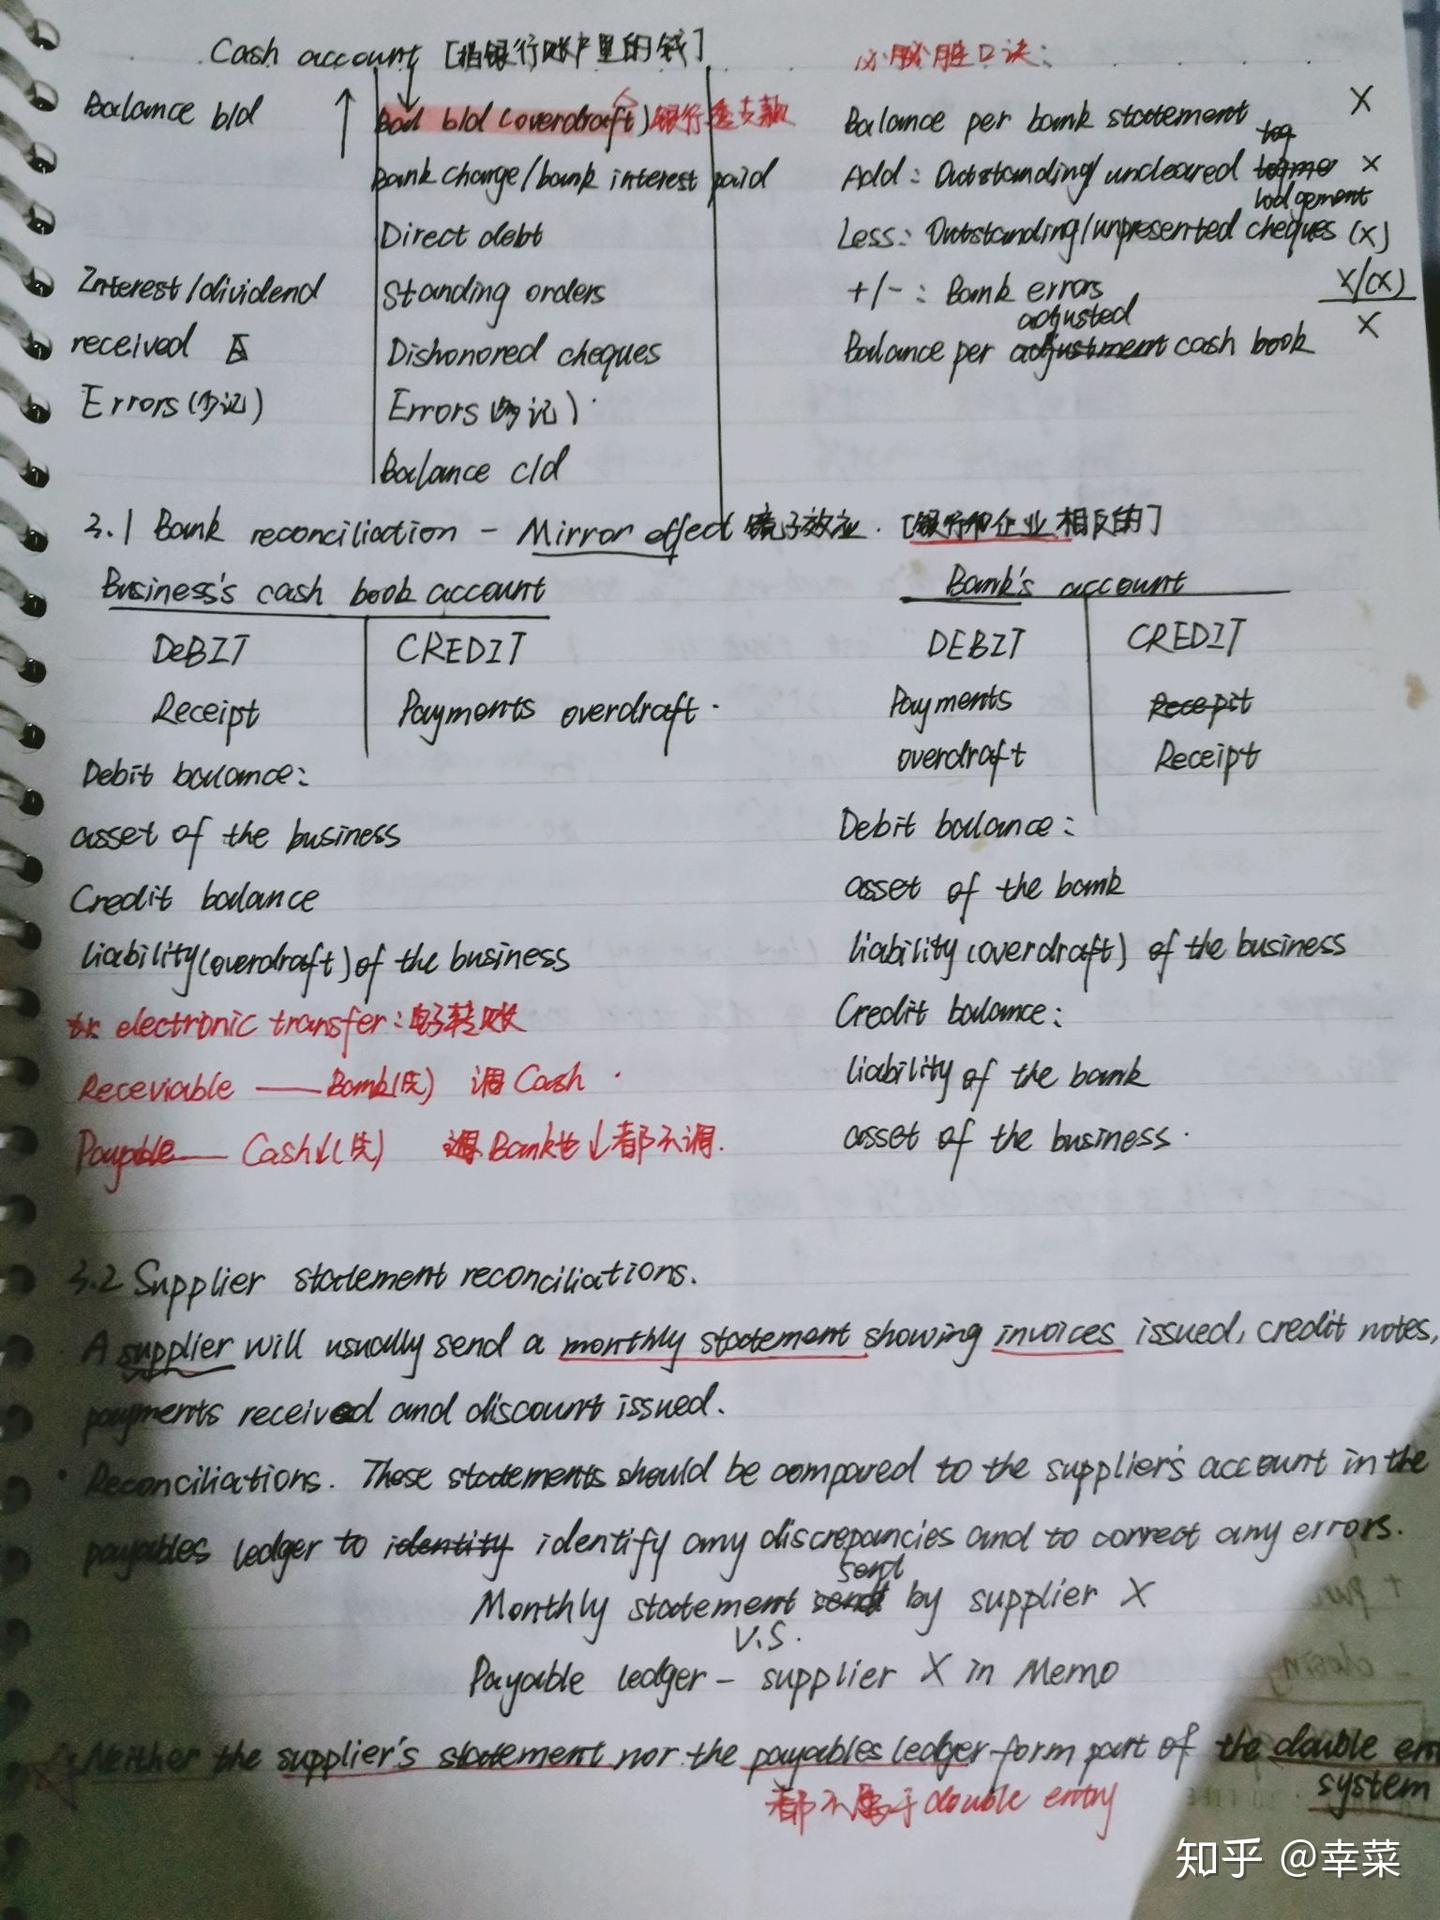 Cash account [指银行账户里的钱]
Balance b/d
Interest/dividend
received
Errors(少记)
Bal b/d (overdraft) 银行透支款
Bank charge/bank interest paid
Direct debt
Standing orders
Dishonored cheques
Errors(多记)
Balance c/d
必胜口诀:
Balance per bank statement X
Add: Outstanding/uncleared lodgement X
Less: Outstanding/unpresented cheques (X)
+/-: Bank errors X/(X)
Balance per adjusted cash book X
3.1 Bank reconciliation - Mirror effect 镜子效应. [银行和企业相反的]
Business's cash book account
DeBIT CREDIT
Receipt Payments overdraft.
Debit balance:
asset of the business
Credit balance
liability(overdraft) of the business
electronic transfer: 电子转账
Receviable —— Bank(失) 调 Cash.
Payable —— Cash↓(失) Bank也↓都不调.
Bank's account
DEBIT CREDIT
Payments Recepit
overdraft Receipt
Debit balance:
asset of the bank
liability (overdraft) of the business
Credit balance:
liability of the bank
asset of the business.
3.2 Supplier statement reconciliations.
A supplier will usually send a monthly statement showing invoices issued, credit notes,
payments received and discount issued.
Reconciliations. These statements should be compared to the supplier's account in the
payables ledger to identity identify any discrepancies and to correct any errors.
Monthly statement sent by supplier X
V.S.
Payable ledger - supplier X in Memo
Neither the supplier's statement nor the payables ledger form part of the double
system
都不属于double entry
知乎 @幸菜